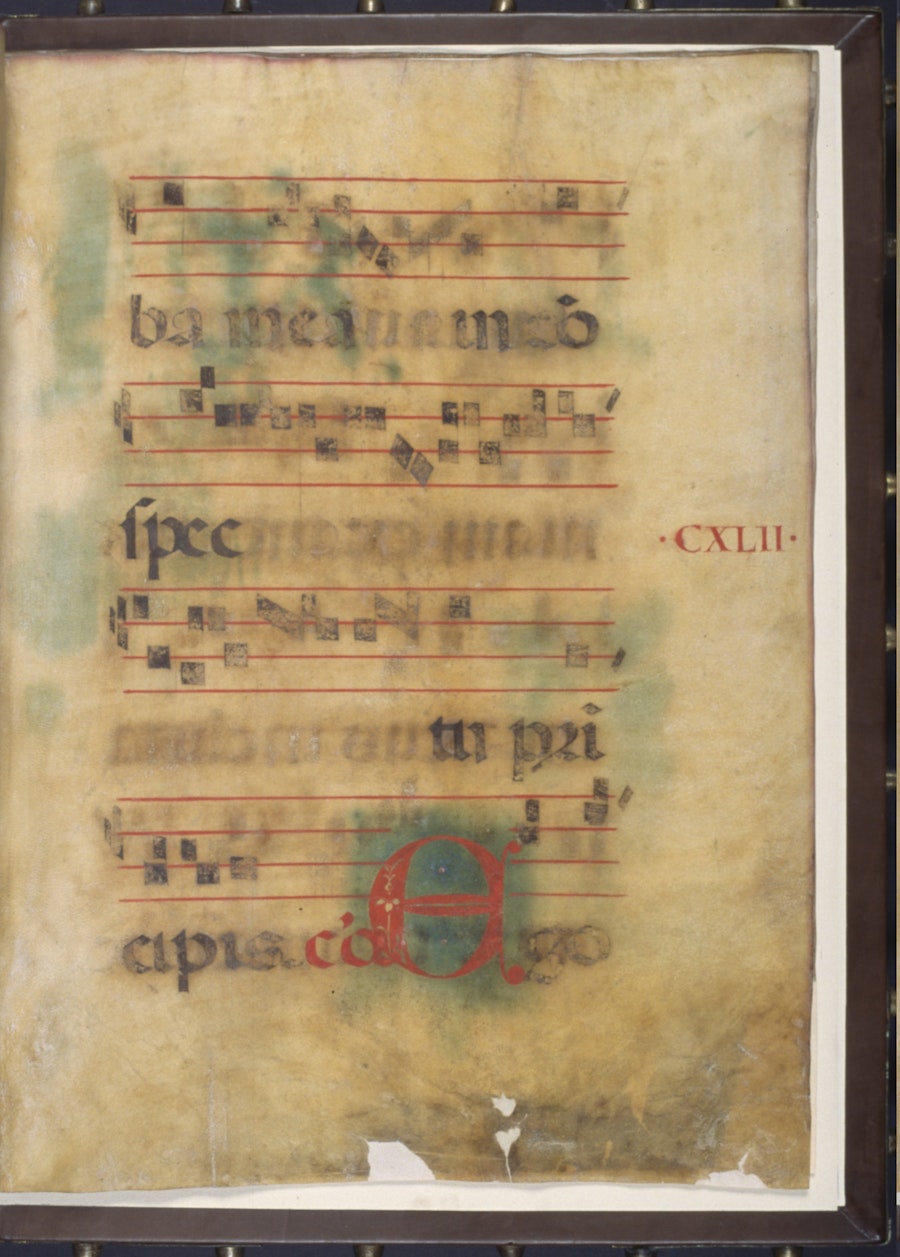 ba mea in cō
spec
·CXLII·
tu pri
cipis cō Ego